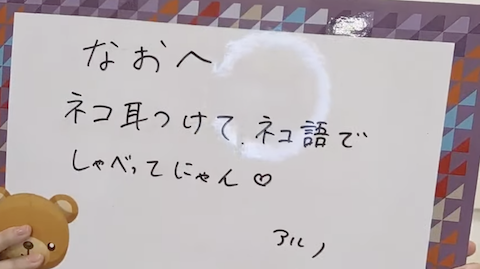 なおへ
ネコ耳つけて、ネコ語で
しゃべってにゃん♡
アルノ